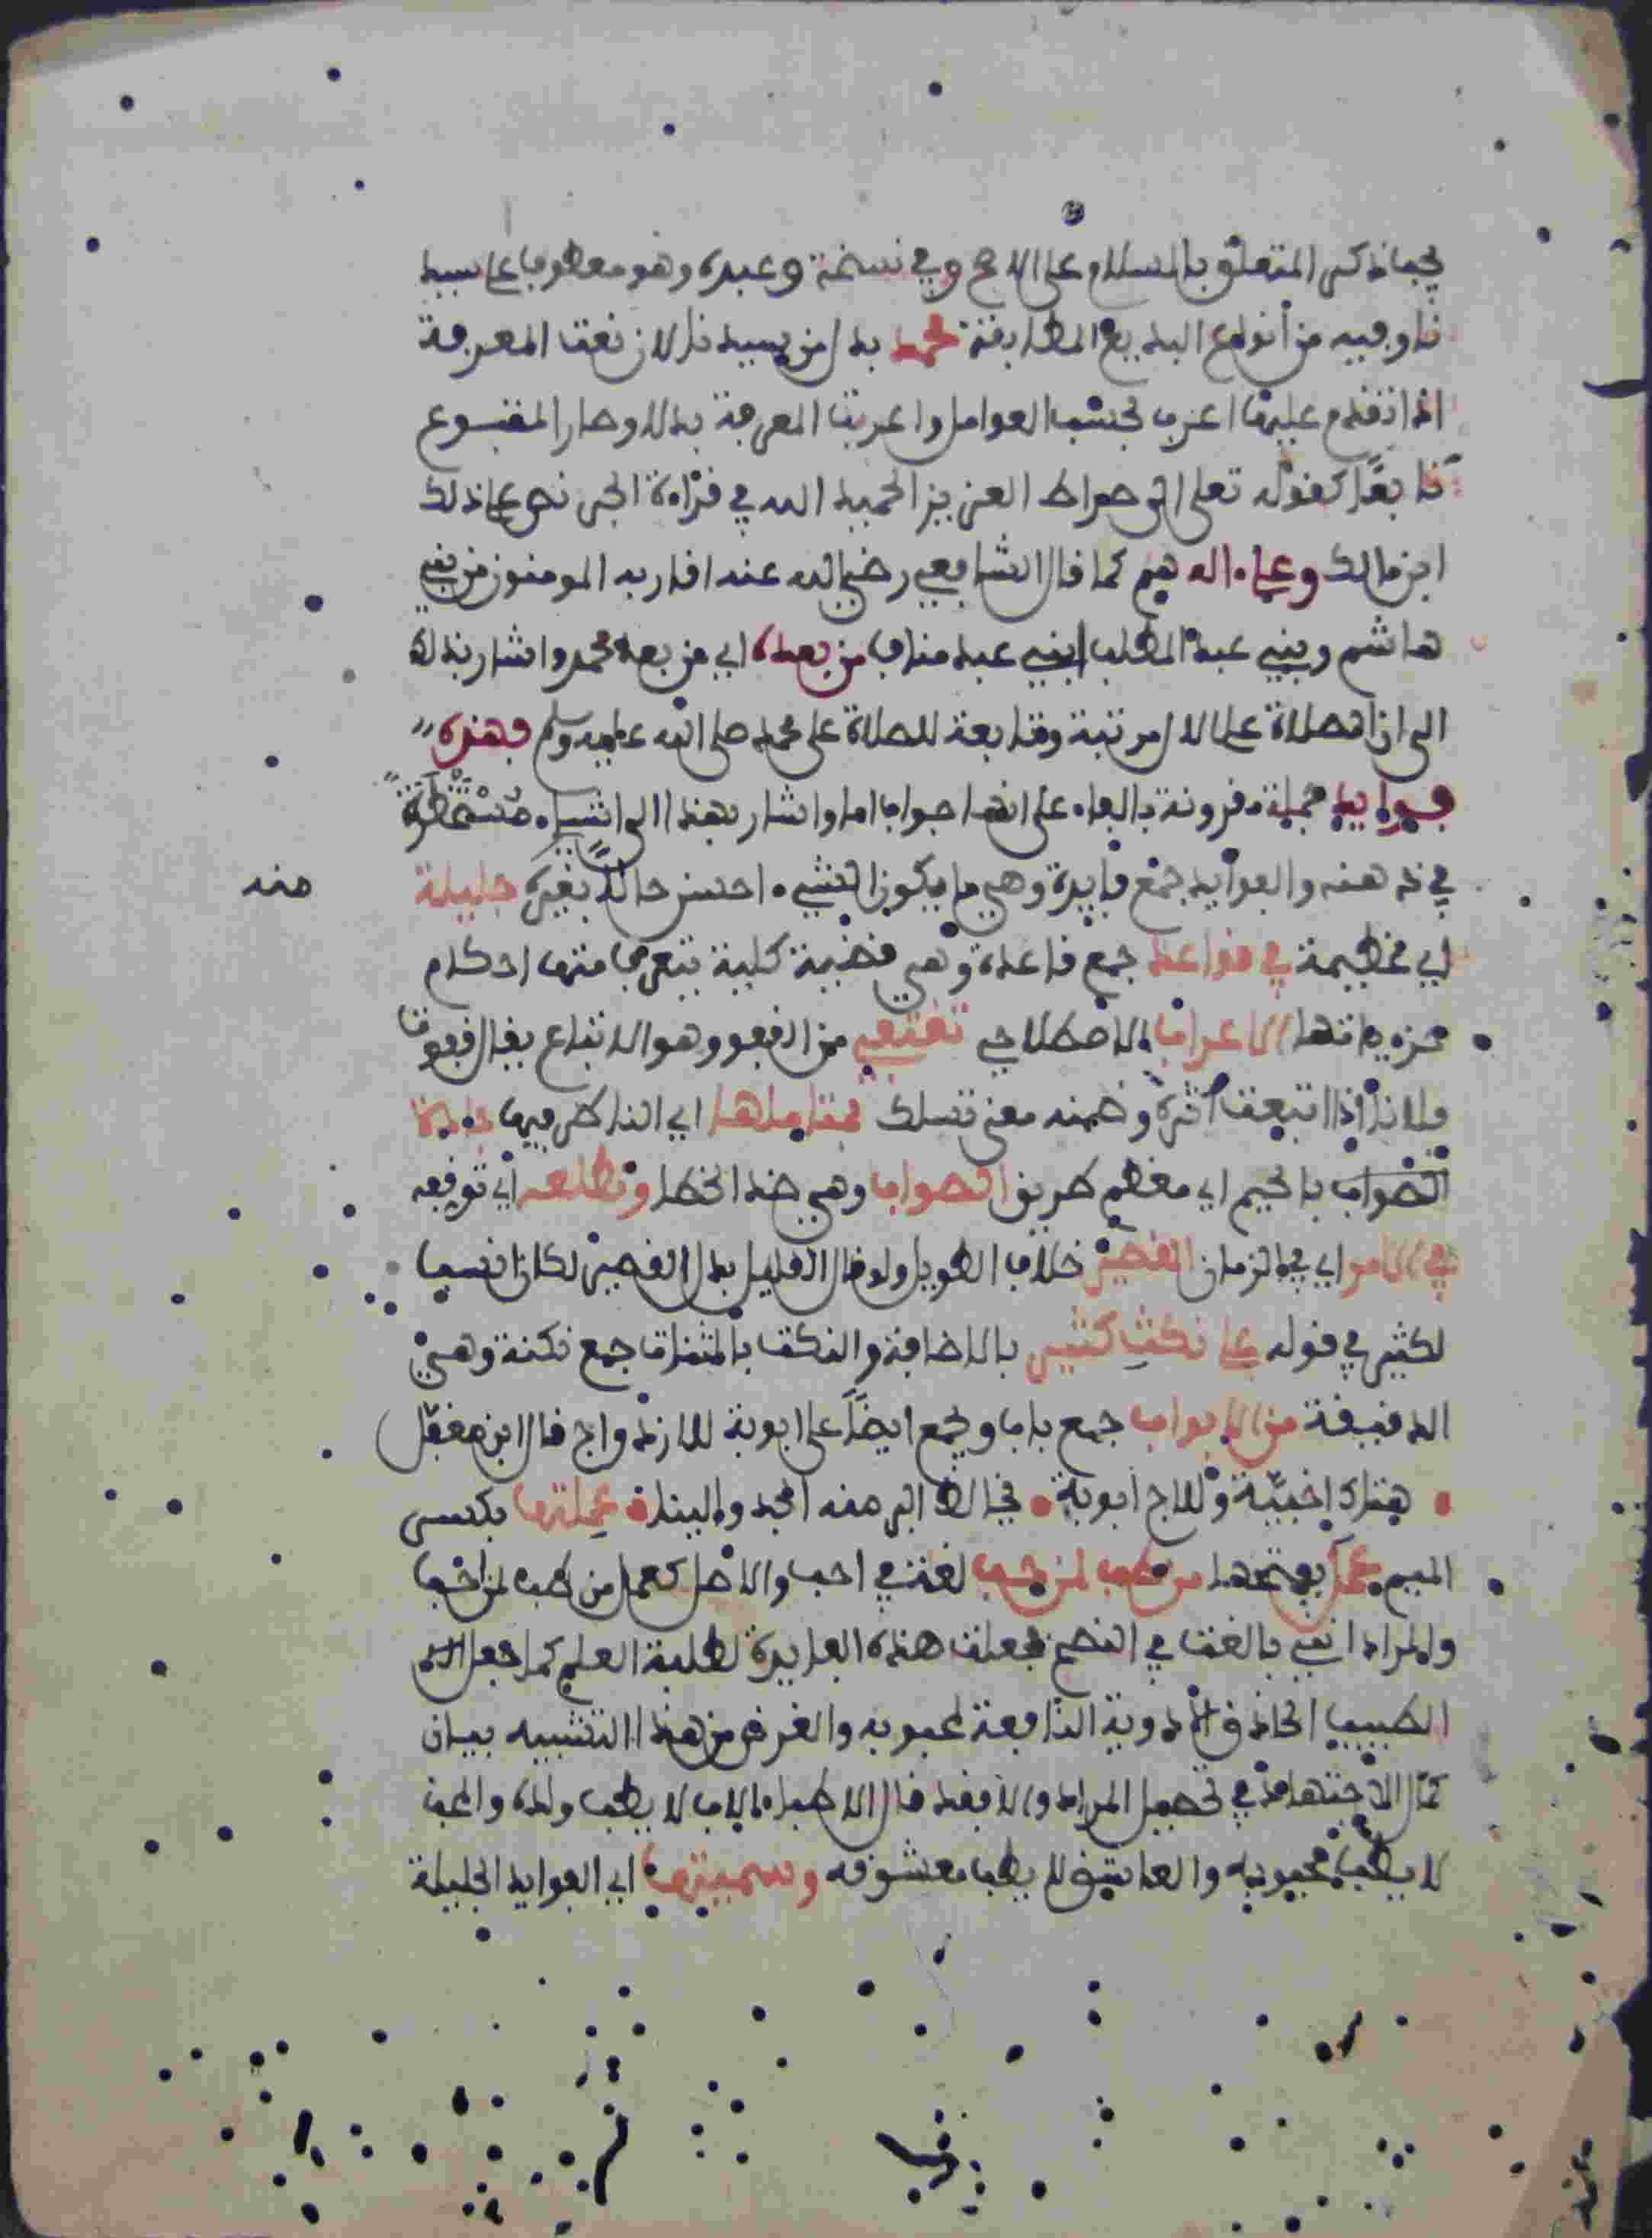 فيما ذكر المتعلق بالسلام على الاصح وفي نسخة وعبده وهو معطوف على سيد
نا وفيه من أنواع البديع المطابقة محمد بدل من سيدنا لان نعت المعرفة
اذا تقدم عليها اعرب بحسب العوامل واعربت المعرفة بدلا وصار المتبوع
تابعًا كقوله تعلى الى صراط العزيز الحميد الله في قراءة الجر نص على ذلك
ابن مالك وعلى ءاله هم كما قال الشافعي رضي الله عنه اقاربه المومنون من بني
هاشم وبني عبد المطلب ابني عبد مناف من بعده اي من بعد محمد واشار بذلك
الى ان الصلاة على الال مرتبة وتابعة للصلاة على محمد صلى الله عليه وسلم فهذه
فوايد جملة مقرونة بالفاء على انها جواب اما واشار بهذا الى اشياء مستحضرة
في ذهنه والفوايد جمع فايدة وهي ما يكون الشيء احسن حالا بغيره جليلة
منه
اي عظيمة في قواعد جمع قاعدة وهي قضية كلية يتعرف منها احكام
جزءياتها الاعراب الاصطلاحي تقتفي من القفو وهو الاتباع يقال قفوت
فلانا اذا اتبعت أثره وضمنه معنى تسلك بمتاملها اي الناظر فيها جادة
الصواب بالجيم اي معظم طريق الصواب وهي ضد الخطا وتطلعه اي توقفه
في الامد اي في الزمان القصير خلاف الطويل ولو قال القليل بدل القصير لكان انسب
لكثير في قوله على نكت كثير بالاضافة والنكت بالمثناة جمع نكتة وهي
الدقيقة من الابواب جمع باب ويجمع ايضًا على ابوبة للازدواج قال ابن مقبل
هتاك اخبية ولاج ابوبة يخالط البر منه الجد واللينا عملتها بكسر
الميم عمل بفتحها من طب لمن حب لغة في احب والاصل كعمل من طب لمن احب
والمراد انني بالغت في النصح فجعلت هذه الفايدة لطلبة العلم كما جعل
الطبيب الحاذق الادوية النافعة لمحبوبه والغرض من هذا التشبيه بيان
كمال الاجتهاد في تحصيل المراد والا فقد قال الاطباء الاب لا يطب ولده والمحب
لا يطب محبوبه والعاشق لا يطب معشوقه وسميتها اي الفوايد الجليلة